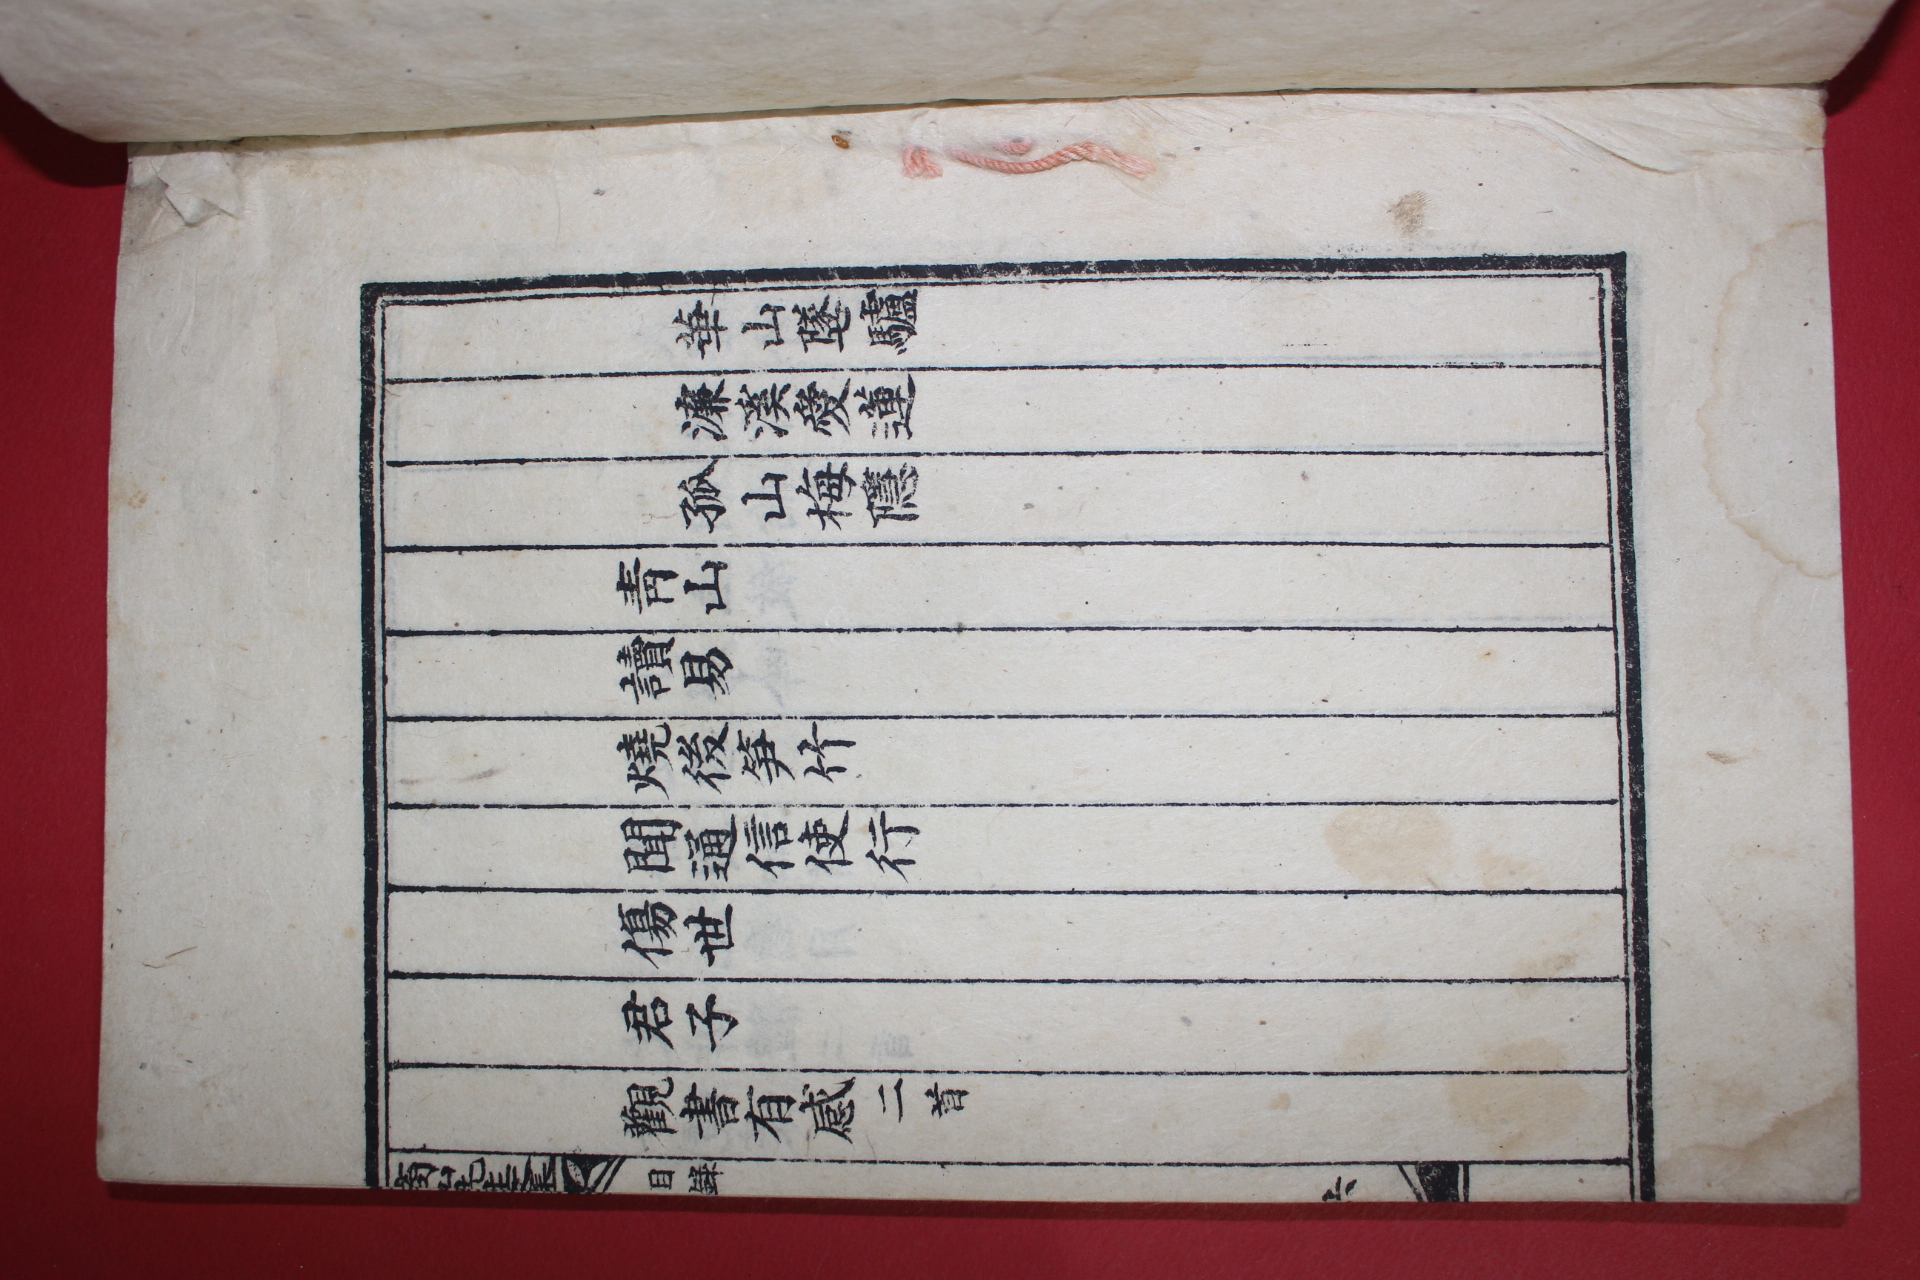 華山墜驢
濂溪愛蓮
孤山梅隱
靑山
讀易
燒後笋竹
聞通信使行
傷世
君子
觀書有感二首
目錄